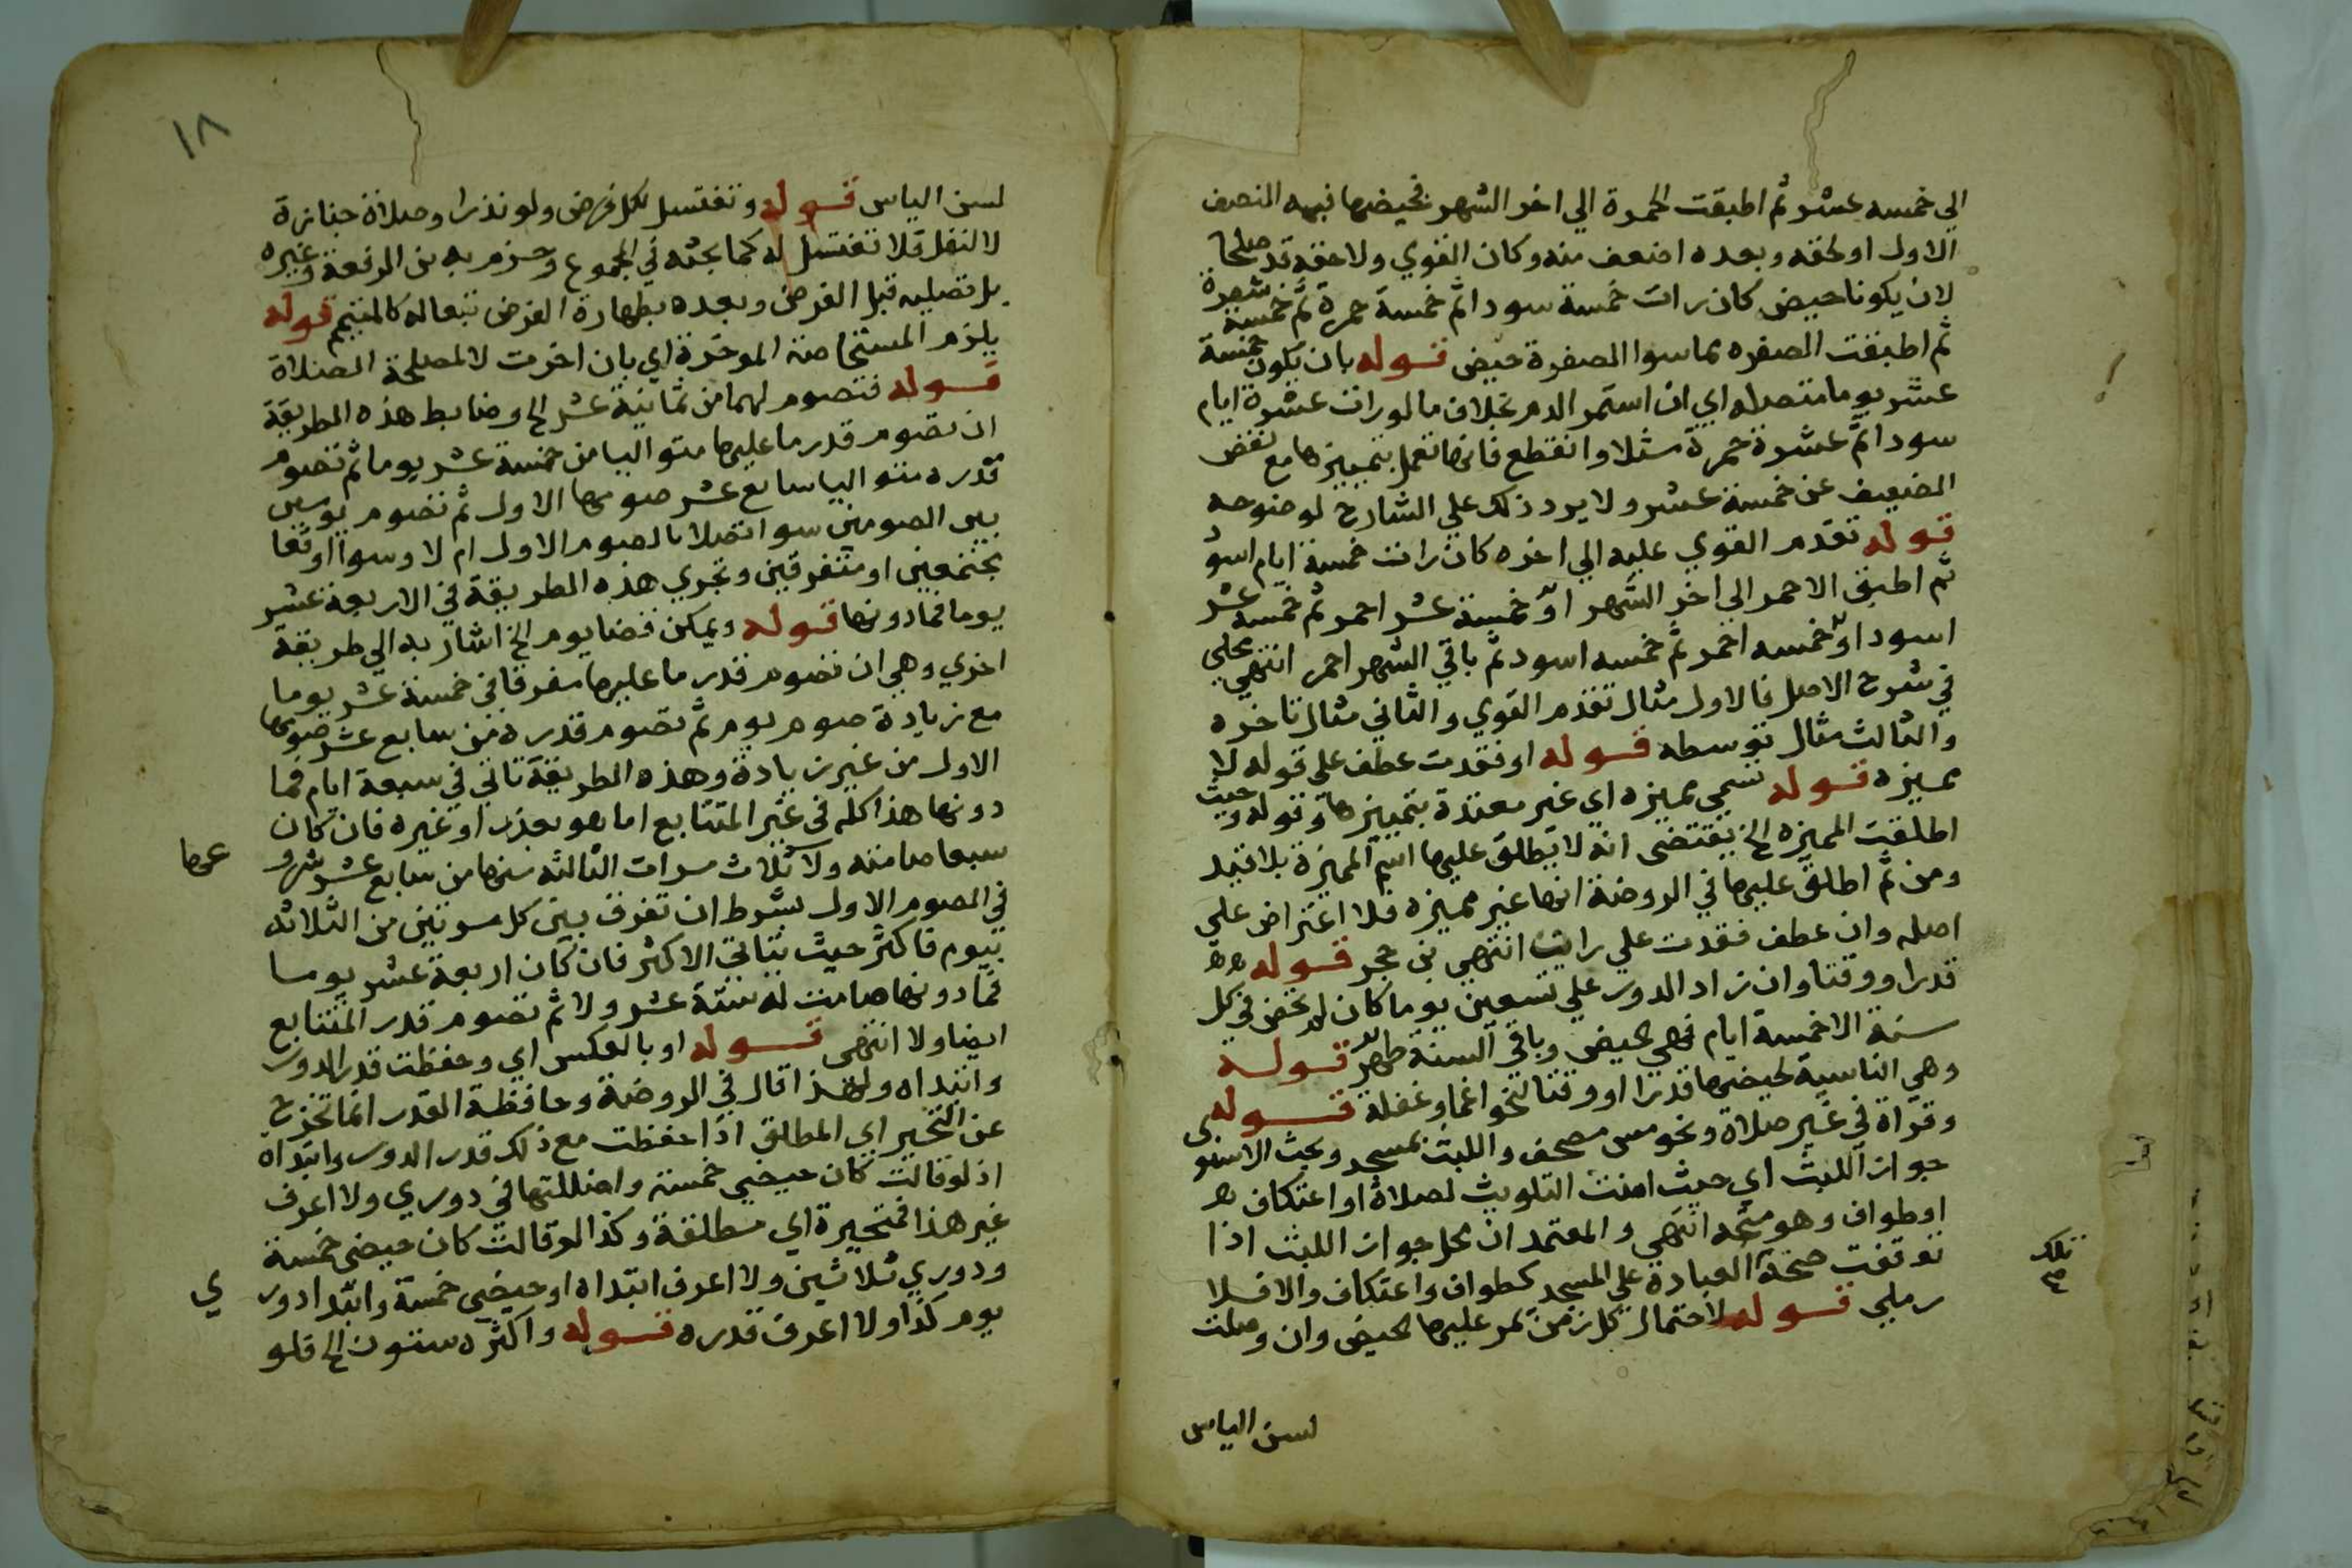 الي خمسه عشر ثم اطبقت الحمرة الي اخر الشهر فحيضها فيه النصف
الاول او لحقه وبعده اضعف منه وكان القوي ولاحقه قد صلحا
لان يكونا حيض كان رات خمسة سودا ثم خمسة حمرة ثم خمسة شقرة
ثم اطبقت الصفره فما سوا الصفرة حيض قوله بان يكون خمسة
عشر يوما متصله اي ان استمر الدم بخلاف ما لو رات عشرة ايام
سودا ثم عشرة حمرة مثلا وانقطع فانها تعمل بتمييزها مع نقص
الضعيف عن خمسة عشر ولا يرد ذلك علي الشارح لوضوحه
قوله تقدم القوي عليه الي اخره كان رات خمسة ايام اسود
ثم اطبق الاحمر الي اخر الشهر او خمسة عشر احمر ثم خمسة عشر
اسود او خمسه احمر ثم خمسه اسود ثم باقي الشهر احمر انتهي محلي
في شرح الاصل فالاول مثال تقدم القوي والثاني مثال تاخره
والثالث مثال توسطه قوله او فقدت عطف علي قوله لا
مميزه قوله تسمي مميزه اي غير معتدة بتمييزها وقوله وحيث
اطلقت المميزه الخ يقتضي انه لا يطلق عليها اسم المميزة بلا قيد
ومن ثم اطلق عليها في الروضة انها غير مميزه فلا اعتراض علي
اصله وان عطف فقدت علي رات انتهي بن حجر قوله
قدرا ووقتا وان زاد الدور علي تسعين يوما كان لم تحض في كل
سنة الا خمسة ايام فهي الحيض وباقي السنة طهر قوله
وهي الناسية لحيضها قدرا او وقتا لنحو اغما وغفلة قوله
وقراة في غير صلاة ونحو مس مصحف واللبث بمسجد وبحث الاسنوي
جواز اللبث اي حيث امنت التلويث لصلاة او اعتكاف
او طواف وهو متجه انتهي والمعتمد ان محل جواز اللبث اذا
توقفت صحة العبادة علي المسجد كطواف واعتكاف والا فلا
رملي قوله لاحتمال كل زمن تمر عليها الحيض وان وصلت
لسن الياس
تلك
١٨
لسن الياس قوله وتغتسل لكل فرض ولو نذرا وصلاة جنازة
لا لنفل فلا تغتسل له كما بحثه في المجموع وجزم به بن الرفعة وغيره
بل تصليه قبل الفرض وبعده بطهارة الفرض تبعا له كالمتيمم قوله
يلزم المستحاضة الموخرة اي بان اخرت لا لمصلحة الصلاة
قوله فتصوم لهما من ثمانية عشر الخ وضابط هذه الطريقة
ان تصوم قدر ما عليها متواليا من خمسة عشر يوما ثم تصوم
قدره متواليا سابع عشر صومها الاول ثم تصوم يومين
بين الصومين سوا اتصلا بالصوم الاول ام لا وسوا اوقعا
مجتمعين او متفرقين وتجري هذه الطريقة في الاربعة عشر
يوما فما دونها قوله ويمكن قضا يوم الخ اشار به الي طريقة
اخري وهي ان تصوم قدر ما عليها مفرقا في خمسة عشر يوما
مع زيادة صوم يوم ثم تصوم قدره من سابع عشر صومها
الاول من غير زيادة وهذه الطريقة تاتي في سبعة ايام فما
دونها هذا كله في غير المتتابع اما هو بعذر او غيره فان كان
سبعا صامته ولا ثلاث مرات الثالثه منها من سابع عشر شروعها
في الصوم الاول بشرط ان تفرق بين كل مرتين من الثلاثه
بيوم فاكثر حيث يتاتي الاكثر فان كان اربعة عشر يوما
فما دونها صامت له ستة عشر ولا ثم تصوم قدر المتتابع
ايضا ولا انتهي قوله او بالعكس اي وحفظت قدر الدور
وابتداه ولهذا قال في الروضة وحافظة القدر انما تخرج
عن التحير اي المطلق اذا حفظت مع ذلك قدر الدور وابتداه
اذ لو قالت كان حيضي خمسة واضللتها في دوري ولا اعرف
غير هذا فمتحيرة اي مطلقة وكذا لو قالت كان حيضي خمسة
ودوري ثلاثين ولا اعرف ابتداه او حيضي خمسة وابتدا دوري
يوم كذا ولا اعرف قدره قوله واكثره ستون الخ قلو